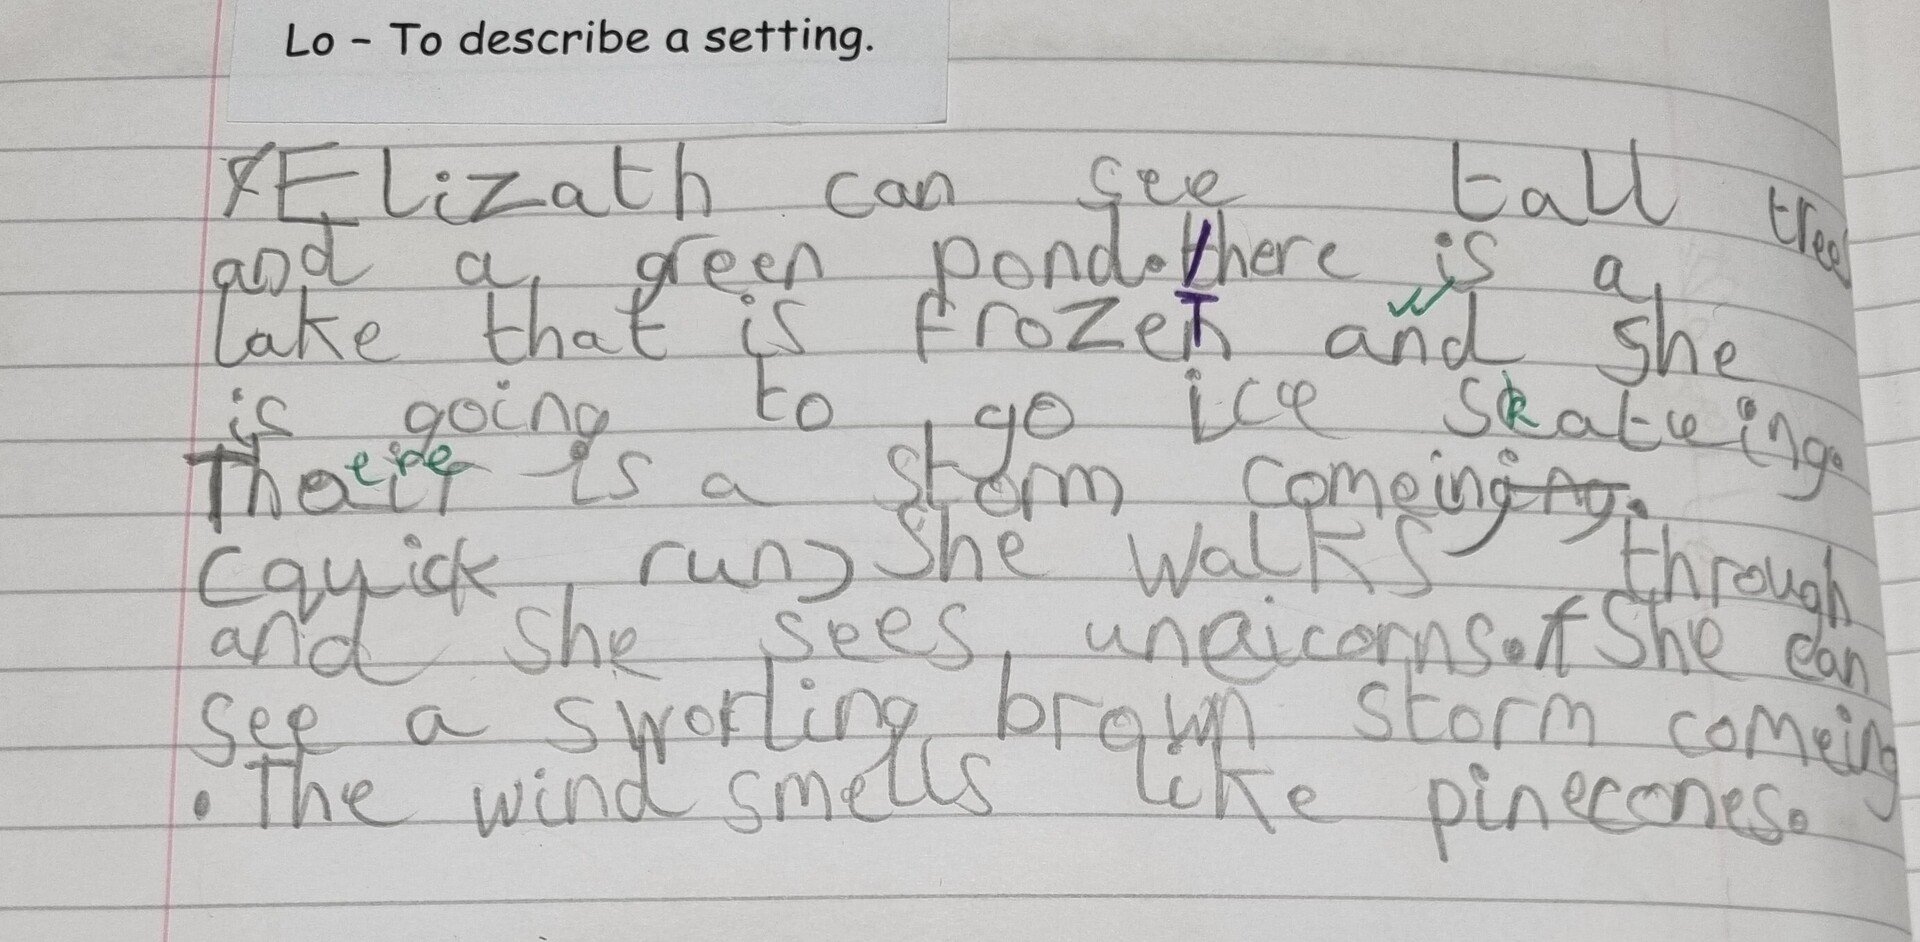 Lo - To describe a setting.
Elizath can see tall tree
and a green pond. There is a
lake that is frozen and she
is going to go ice skateing.
There is a storm comeing.
(quick run) she walks through
and she sees unaicorns. She can
see a sworling brown storm comeing
. The wind smells like pinecones.